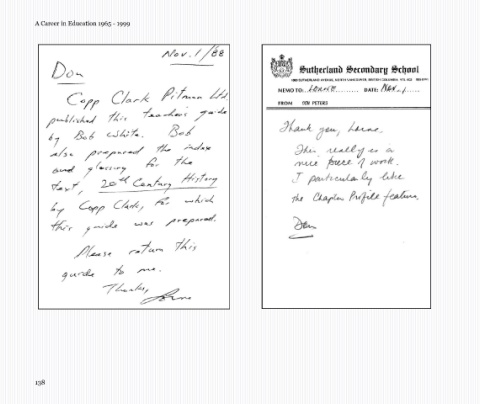 A Career in Education 1965 - 1999
Nov. 1/88
Don
Copp Clark Pitman Ltd.
published this teacher's guide
by Bob White. Bob
also prepared the index
and glossary for the
text, 20th Century History
by Copp Clark, for which
this guide was prepared.
Please return this
guide to me.
Thanks,
Lorne
Sutherland Secondary School
1860 SUTHERLAND AVENUE, NORTH VANCOUVER, BRITISH COLUMBIA
MEMO TO: LORNE DATE: Nov. 1
FROM DON PETERS
Thank you, Lorne.
This really is a
nice piece of work.
I particularly like
the Chapter Profile feature.
Don
138